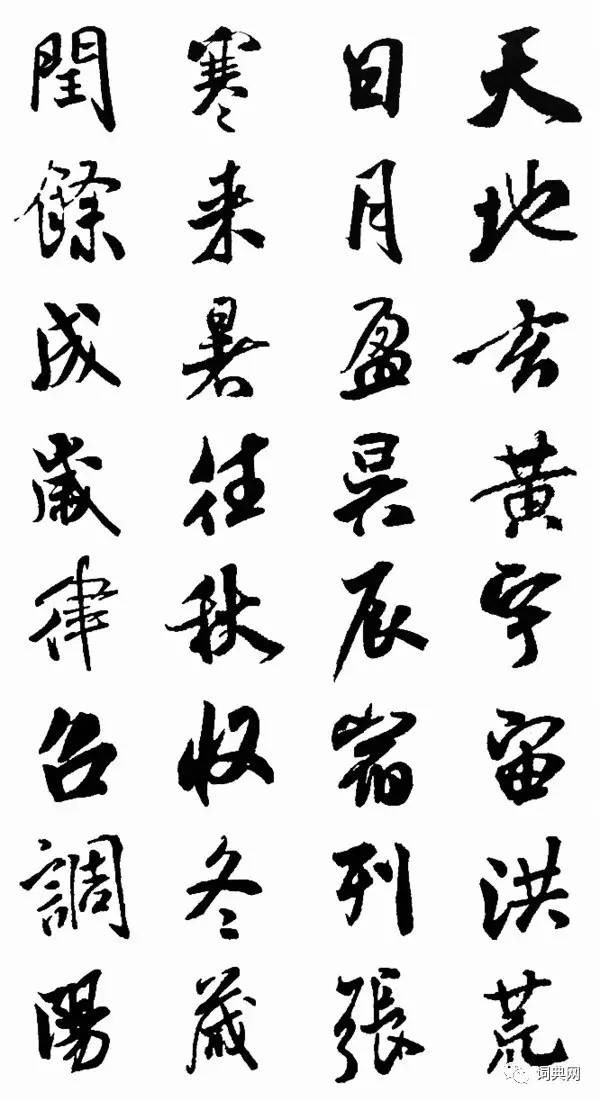 天地玄黃宇宙洪荒
日月盈昃辰宿列張
寒来暑往秋收冬藏
閏餘成歲律召調陽
词典网